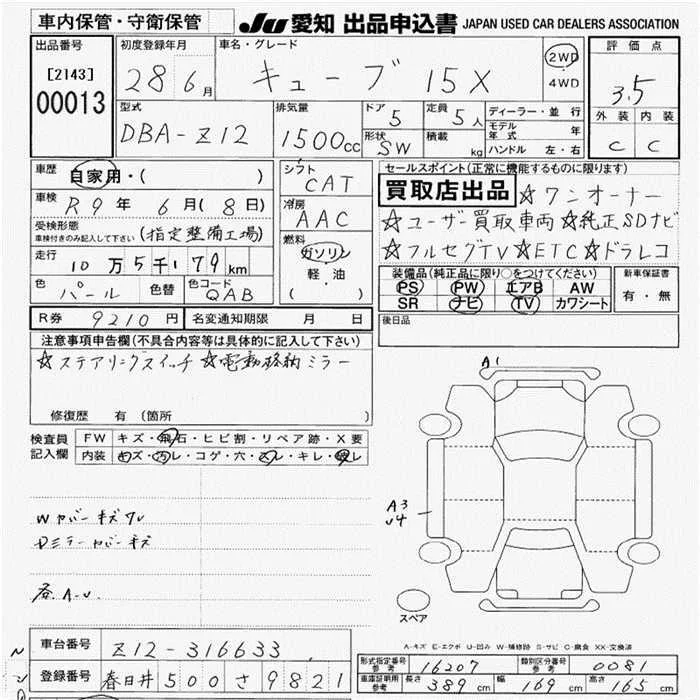 車内保管・守衛保管 JU 愛知 出品申込書 JAPAN USED CAR DEALERS ASSOCIATION
出品番号 初度登録年月 車名・グレード 2WD 評価点
[2143] 28年6月 キューブ 15X 4WD 3.5
00013
型式 排気量 ドア 5 定員 5人 ディーラー・並行 外装 内装
DBA-Z12 1500cc 形状 SW 積載 kg モデル年式 年 C C
ハンドル 左・右
車歴 自家用・( ) シフト CAT セールスポイント(正常に機能するものに限ります)
車検 R9年6月(8日) 冷房 AAC 買取店出品 ☆ワンオーナー
受検形態 ☆ユーザー買取車両 ☆純正SDナビ
車検付きのみ記入して下さい (指定整備工場) 燃料 ガソリン ☆フルセグTV ☆ETC ☆ドラレコ
走行 10万5千179km 軽・油 装備品(純正品に限り○をつけてください) 新車保証書
色 パール 色替 色コード QAB ( ) PS PW エアB AW 有・無
SR ナビ TV カワシート
R券 9210円 名変通知期限 月 日 後日品
注意事項申告欄(不具合内容等は具体的に記入して下さい)
☆ステアリングスイッチ ☆電動格納ミラー
A1
修復歴 有(箇所 )
検査員 FW キズ・飛石・ヒビ割・リペア跡・X要
記入欄 内装 キズ・汚レ・コゲ・穴・スレ・キレ・破レ
A3
U4
Wカバーキズワレ
Dミラーカバーキズ
各A-U
スペア
A-キズ E-エクボ U-凹み W-補修跡 S-サビ C-腐食 XX-交換済
車台番号 Z12-316633
形式指定番号 参考 16207 類別区分番号 参考 0081
登録番号 春日井 500 さ 9821
車庫証明用 参考 長さ 389cm 幅 169cm 高さ 165cm